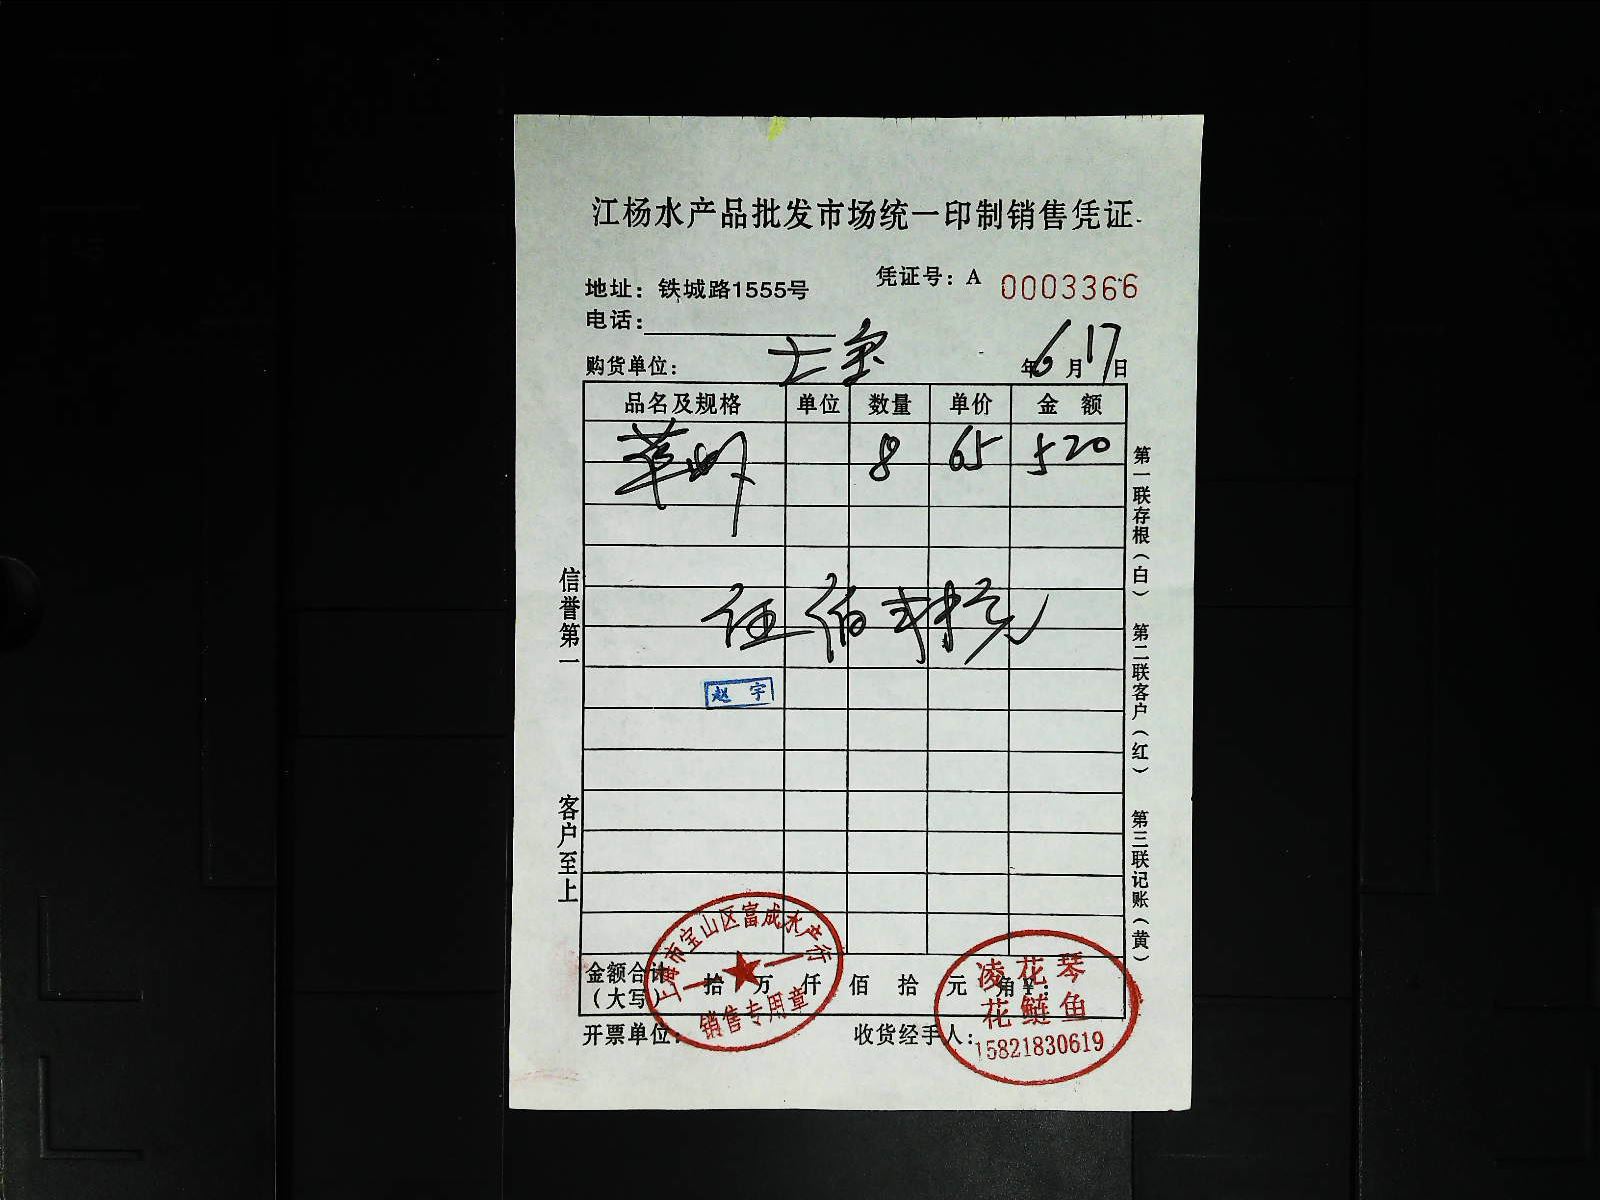 江杨水产品批发市场统一印制销售凭证
地址：铁城路1555号
凭证号：A 0003366
电话：
购货单位：
年6月17日
品名及规格 单位 数量 单价 金 额
8 65 520
伍佰弍拾元
赵 宇
信誉第一
客户至上
第一联存根（白）
第二联客户（红）
第三联记账（黄）
金额合计
（大写
拾 万 仟 佰 拾 元 角 ¥：
开票单位：
收货经手人：
上海市宝山区富成水产行
销售专用章
凌花琴
花鲢鱼
15821830619